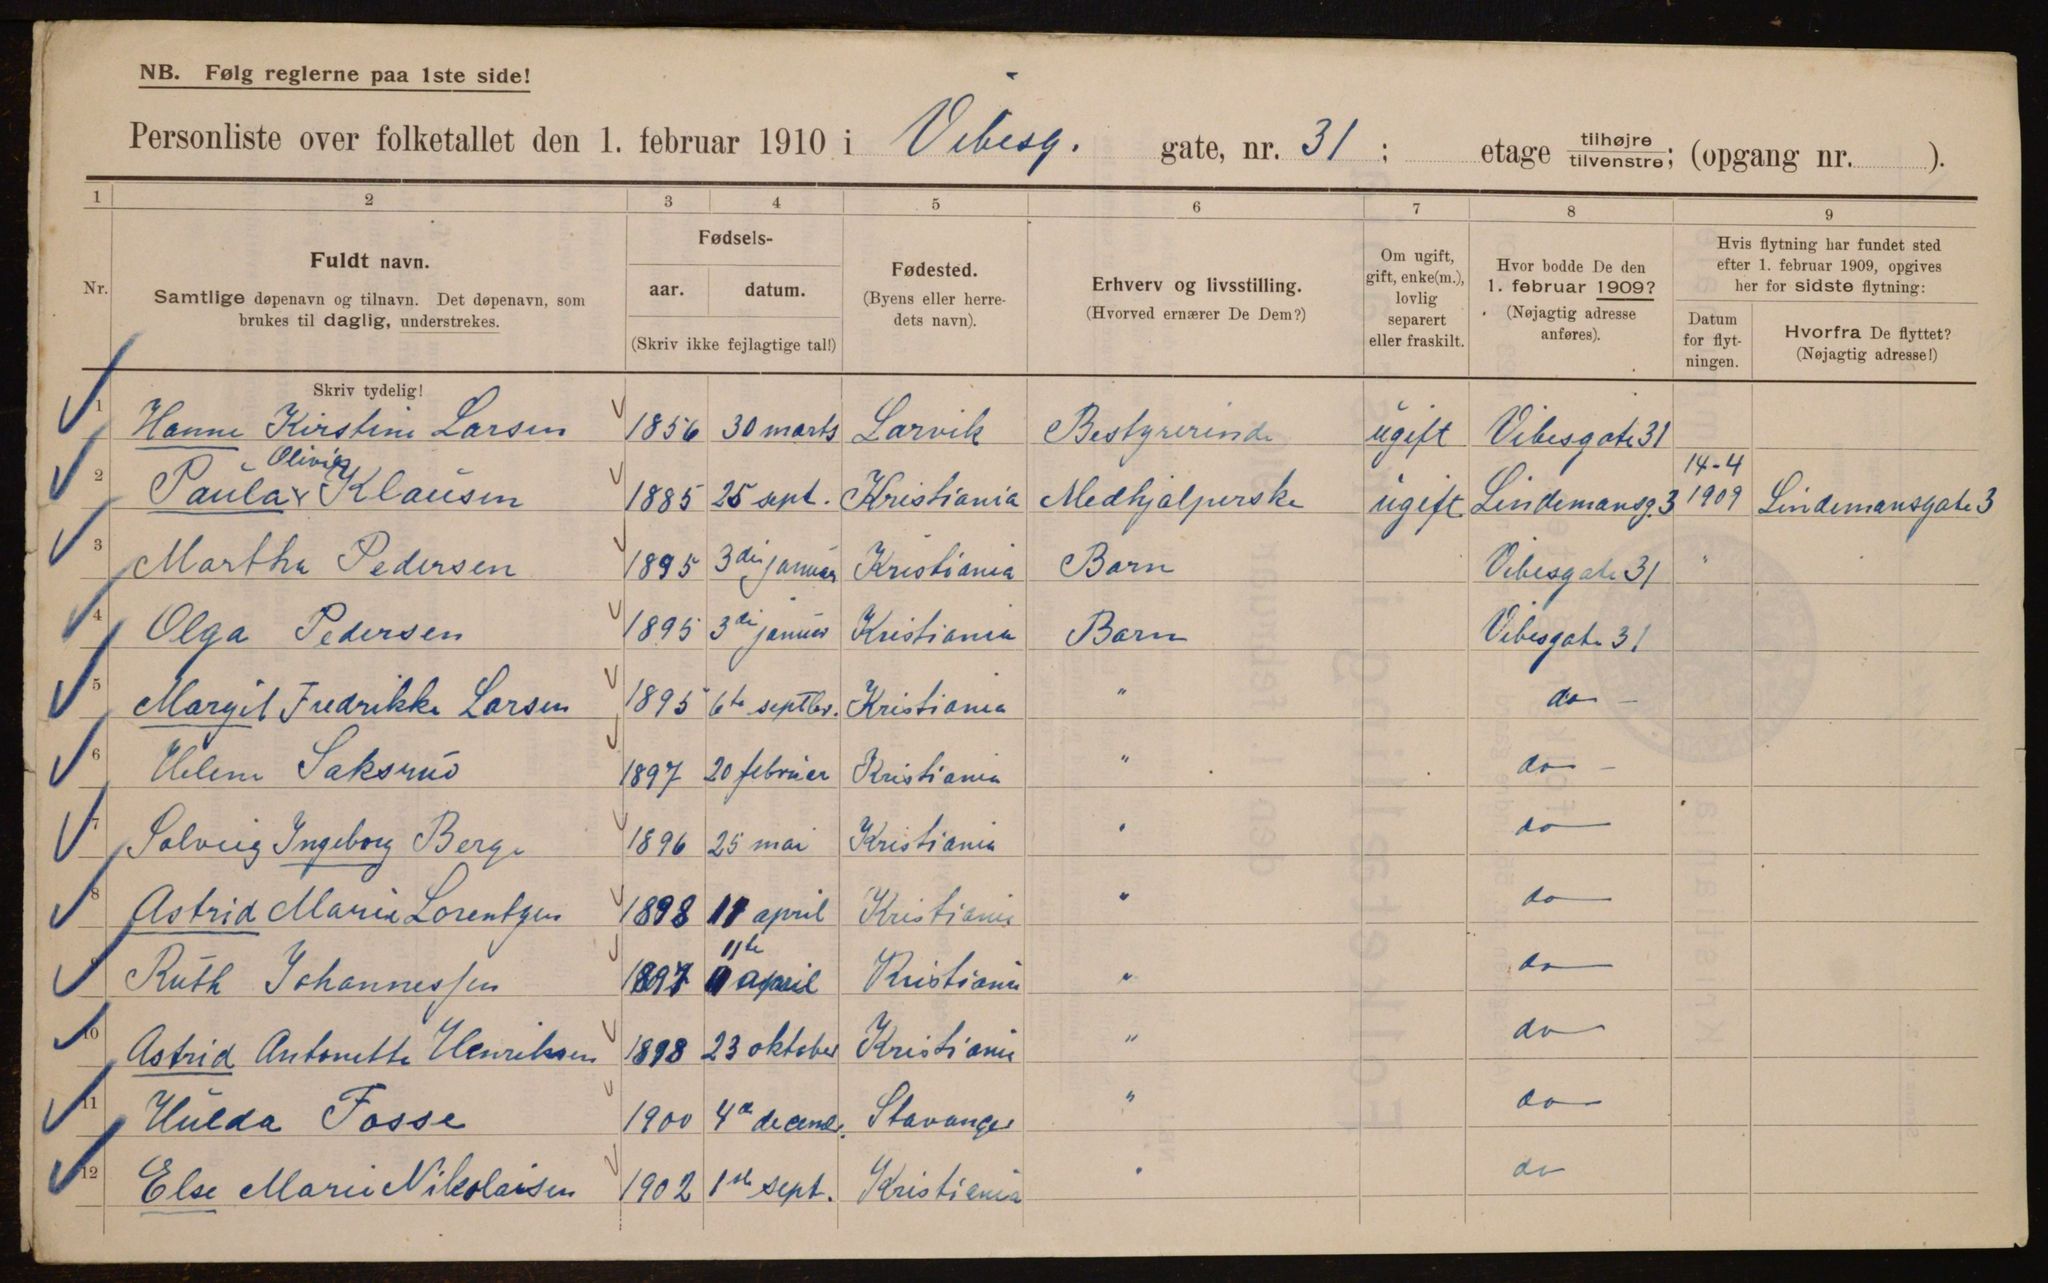 NB. Følg reglerne paa 1ste side!
Personliste over folketallet den 1. februar 1910 i Vibesg. gate, nr. 31 ; etage tilhøjre tilvenstre; (opgang nr. ).
1 2 3 4 5 6 7 8 9
Nr.
Fuldt navn.
Samtlige døpenavn og tilnavn. Det døpenavn, som
brukes til daglig, understrekes.
Skriv tydelig!
Fødsels-
aar. datum.
(Skriv ikke fejlagtige tal!)
Fødested.
(Byens eller herre-
dets navn).
Erhverv og livsstilling.
(Hvorved ernærer De Dem?)
Om ugift,
gift, enke(m.),
lovlig
separert
eller fraskilt.
Hvor bodde De den
1. februar 1909?
(Nøjagtig adresse
anføres).
Hvis flytning har fundet sted
efter 1. februar 1909, opgives
her for sidste flytning:
Datum
for flyt-
ningen.
Hvorfra De flyttet?
(Nøjagtig adresse!)
1 Hanne Kirstine Larsen 1856 30 marts Larvik Bestyrerinde ugift Vibesgate 31
2 Paula Olivia Klausen 1885 25 sept. Kristiania Medhjælperske ugift Lindemansg. 3 14-4 1909 Lindemansgate 3
3 Martha Pedersen 1895 3die januar Kristiania Barn Vibesgate 31 "
4 Olga Pedersen 1895 3die januar Kristiania Barn Vibesgate 31
5 Margit Fredrikke Larsen 1895 6te septbr. Kristiania " do -
6 Helene Saksrud 1897 20 februar Kristiania " do -
7 Solveig Ingeborg Berge 1896 25 mai Kristiania " do
8 Astrid Marie Lorentzen 1898 11 april Kristiania " do
9 Ruth Johannessen 1897 11te april Kristiania " do
10 Astrid Antonette Henriksen 1898 23 oktober Kristiania " do
11 Hulda Fosse 1900 4de decembr. Stavanger " do
12 Else Marie Nikolaisen 1902 1ste sept. Kristiania " do